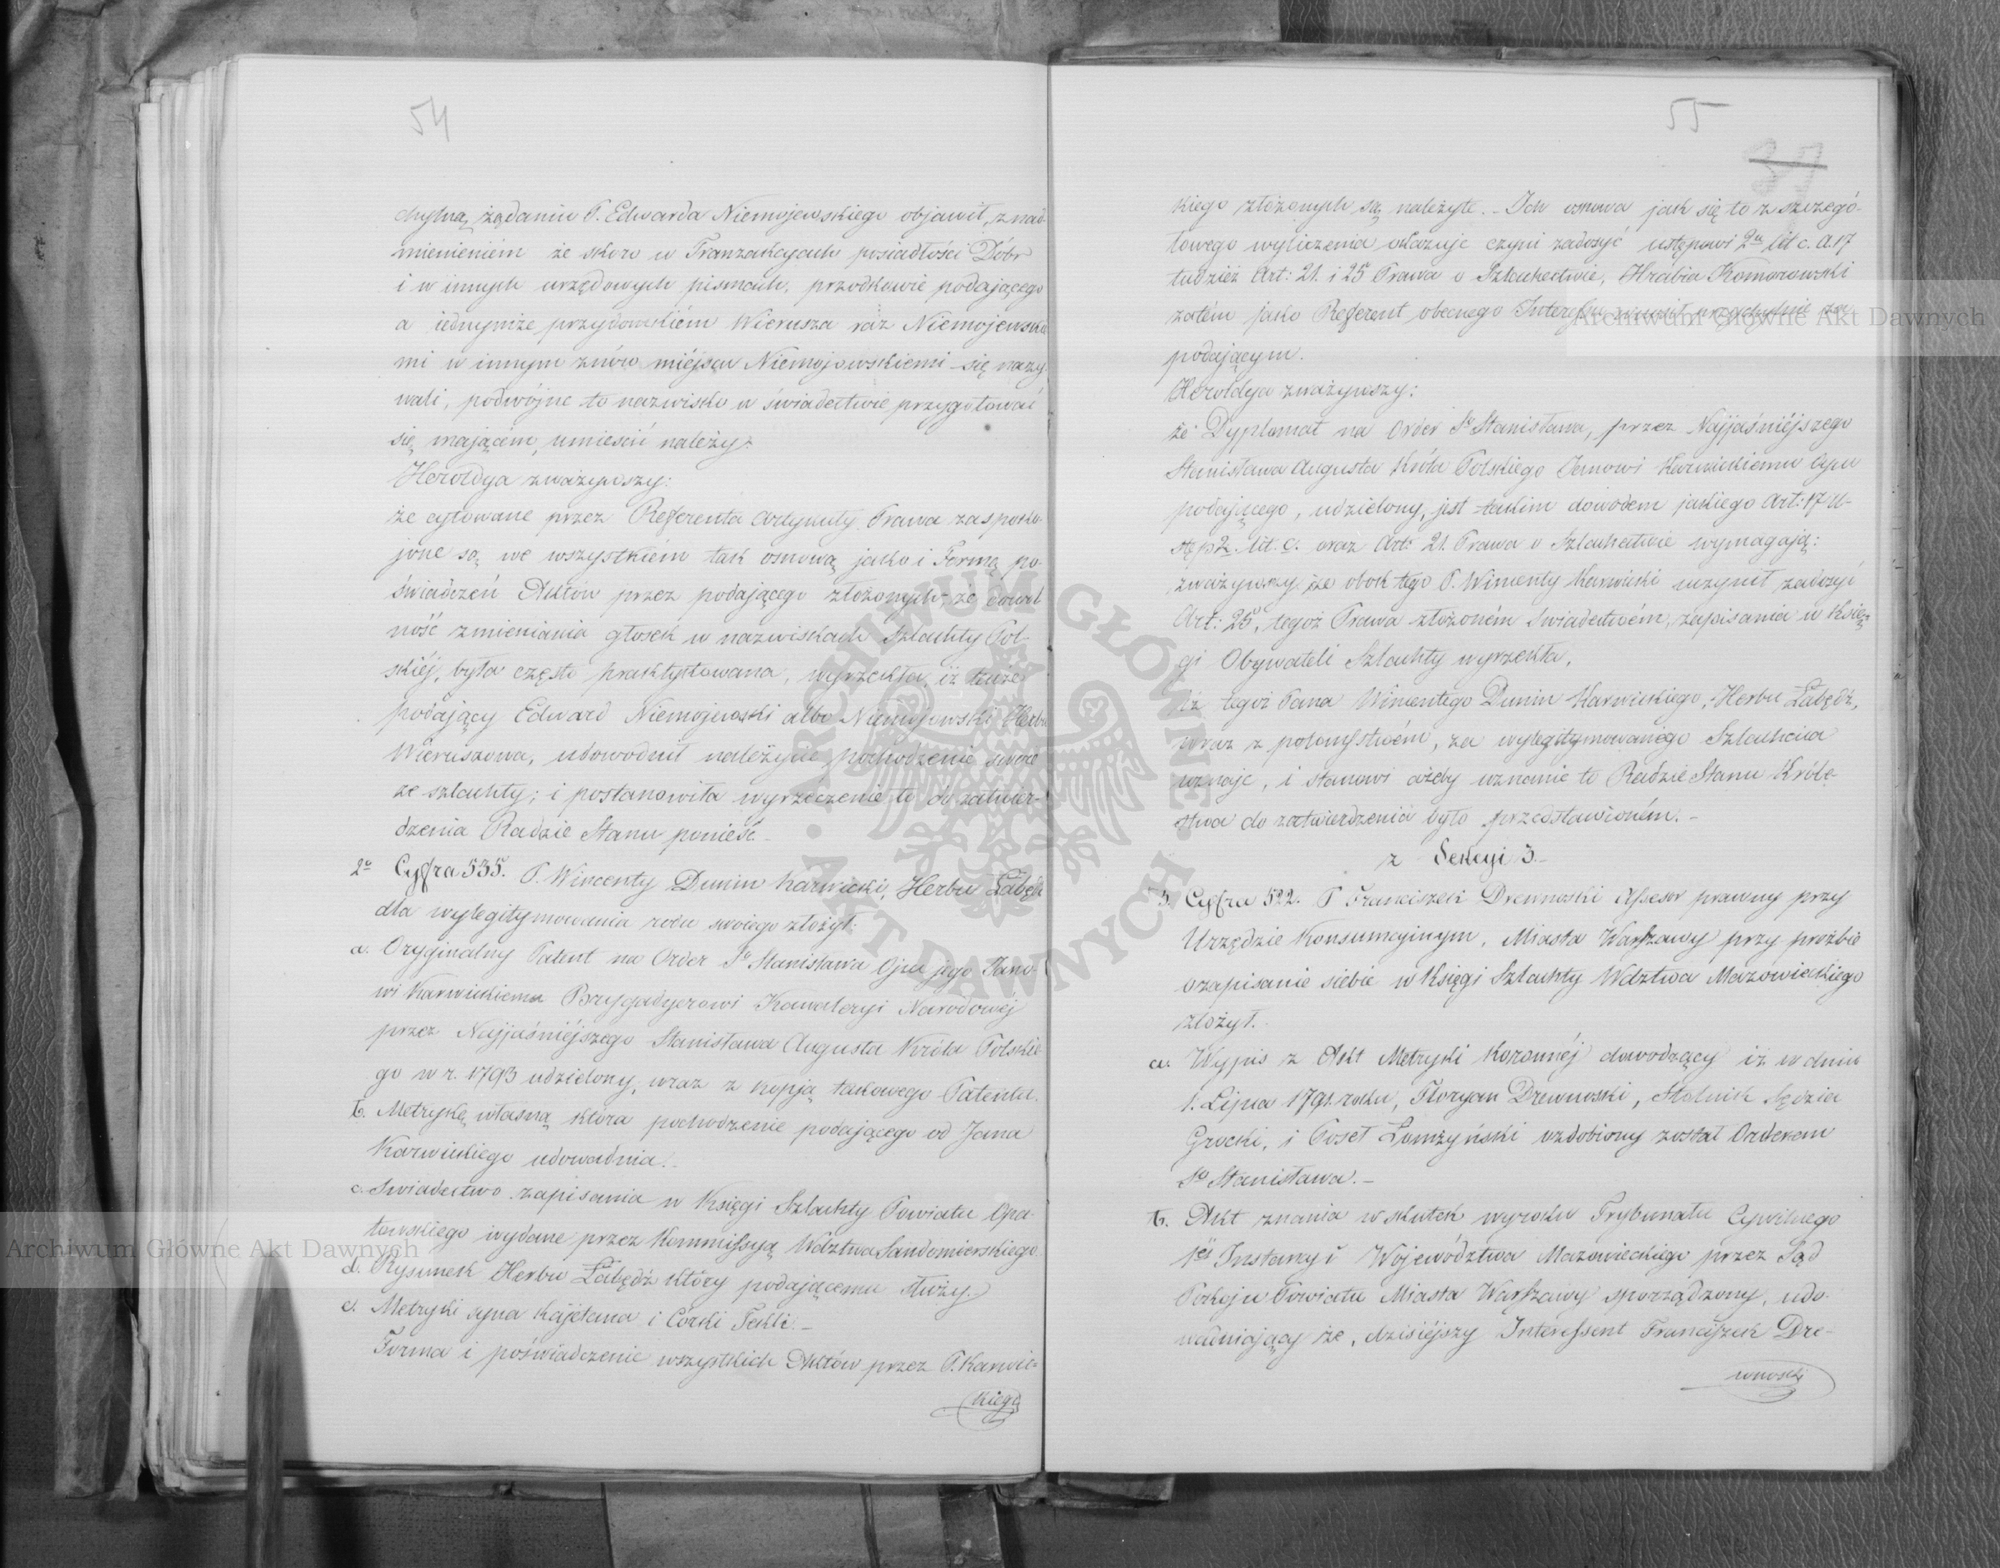 54
chylną żądaniu P. Edwarda Niemojewskiego objawił, z nad-
mienieniém że skoro w Tranzakcyach posiadłości Dóbr
i w innych urzędowych pismach, przodkowie podającego
a iednymże przydomkiém Wierusza raz Niemojewski-
mi w innym znów miéjscu Niemojowskiemi się nazy-
wali, podwójne to nazwisko w świadectwie przygotować
się mającém, umieścić należy.
Heroldya zważywszy:
że cytowane przez Referenta Artykuły Prawa zaspoko-
jone są we wszystkiém tak osnową jako i Formą po-
świadczeń Aktów przez podającego złożonych, że dowol-
ność zmieniania głosek w nazwiskach Szlachty Pol-
skiéj, była często praktykowana, wyrzekła, iż tenże
podający Edward Niemojewski albo Niemojowski Herbu
Wieruszowa, udowodnił należycie pochodzenie swoje
ze szlachty; i postanowiła wyrzeczenie to do zatwier-
dzenia Radzie Stanu ponieść.
2º Cyfra 535. P. Wincenty Dunin Karwicki, Herbu Łabędź
dla wylegitymowania rodu swoiego złożył:
a. Oryginalny Patent na Order Sº Stanisława Ojcu jego Jano-
wi Karwickiemu Brygadyerowi Kawaleryi Narodowéj
przez Najjaśniéjszego Stanisława Augusta Króla Polskie-
go w r. 1793 udzielony, wraz z kopią takowego Patentu.
b. Metrykę własną która pochodzenie podającego od Jana
Karwickiego udowadnia.
c. Świadectwo zapisania w Księgi Szlachty Powiatu Opa-
towskiego wydane przez Kommissyą Wdztwa Sandomierskiego
d. Rysunek Herbu Łabędź który podającemu służy.
e. Metryki syna Kajetana i Córki Tekli.
Forma i poświadczenie wszystkich Aktów przez P. Karwic-
kiego
55
37
kiego złożonych są należyte. Ich osnowa jak się to z szczegó-
łowego wyliczenia okazuje czyni zadosyć ustępowi 2u lit c. A. 17
tudzież Art: 21. i 25 Prawa o Szlachectwie, Hrabia Komorowski
zatém jako Referent obecnego Interessu wniósł przychylnie za
podającym.
Heroldya zważywszy:
że Dyplomat na Order Sº Stanisława, przez Najjaśniéjszego
Stanisława Augusta Króla Polskiego Janowi Karwickiemu Ojcu
podającego, udzielony, jest takim dowodem jakiego Art: 17 u-
stęp 2 lit. c. oraz Art: 21. Prawa o Szlachectwie wymagają:
zważywszy że obok tego P. Wincenty Karwicki uczynił zadosyć
Art: 25, tegoż Prawa złożoném Świadectwém, zapisania w Księ-
gi Obywateli Szlachty wyrzekła,
iż tegoż Pana Wincentego Dunin Karwickiego, Herbu Łabędź,
wraz z potomstwém, za wylegitymowanego Szlachcica
uznaje, i stanowi ażeby uznanie to Radzie Stanu Króle-
stwa do zatwierdzenia było przedstawioném.
z Sekcyi 3.
3. Cyfra 522. P Franciszek Drewnoski Assesor prawny przy
Urzędzie Konsumcyinym, Miasta Warszawy przy prośbie
o zapisanie siebie w Księgi Szlachty Wdztwa Mazowieckiego
złożył.
a. Wypis z Akt Metryki Koronnéj dowodzący iż w dniu
1. Lipca 1791. roku, Floryan Drewnoski, Stolnik Sędzia
Grocki, i Poseł Łomżyński ozdobiony został Orderem
Sº Stanisława.
b. Akt znania w skutek wyroku Trybunału Cywilnego
1éj Instancyi Województwa Mazowieckiego przez Sąd
Pokoju Powiatu Miasta Warszawy sporządzony, udo-
wadniający że, dzisiéjszy Interessent Franciszek Dre-
wnoski
ARCHIWUM GŁÓWNE AKT DAWNYCH
Archiwum Główne Akt Dawnych
Archiwum Główne Akt Dawnych